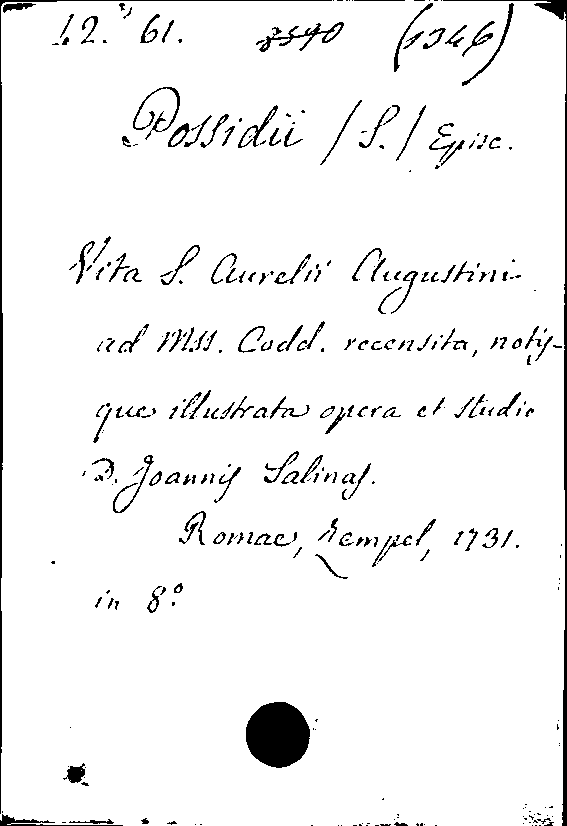 42. 61. 8590 (1346)
Possidii /S./ Episc.
Vita S. Aurelii Augustini
ad Mss. Codd. recensita, notis-
que illustrata opera et studio
D. Joannis Salinas.
Romae, Zempel, 1731.
in 8º